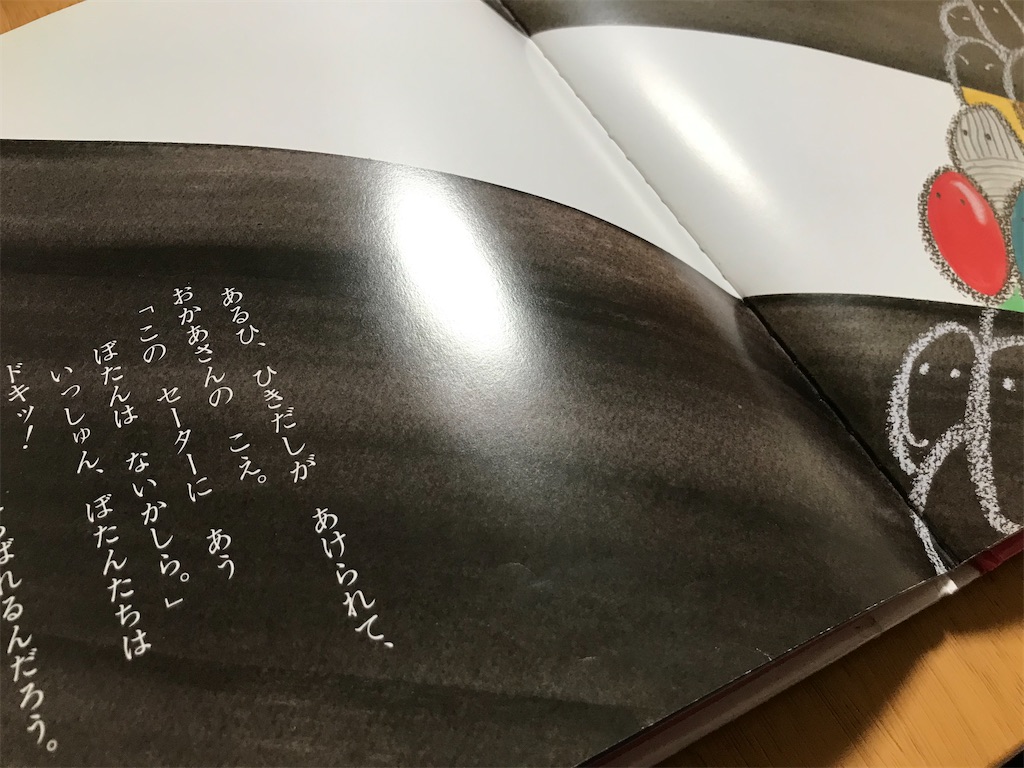 あるひ、ひきだしが　あけられて、
おかあさんの　こえ。
「この　セーターに　あう
ぼたんは　ないかしら。」
いっしゅん、ぼたんたちは
ドキッ！
ばれるんだろう。